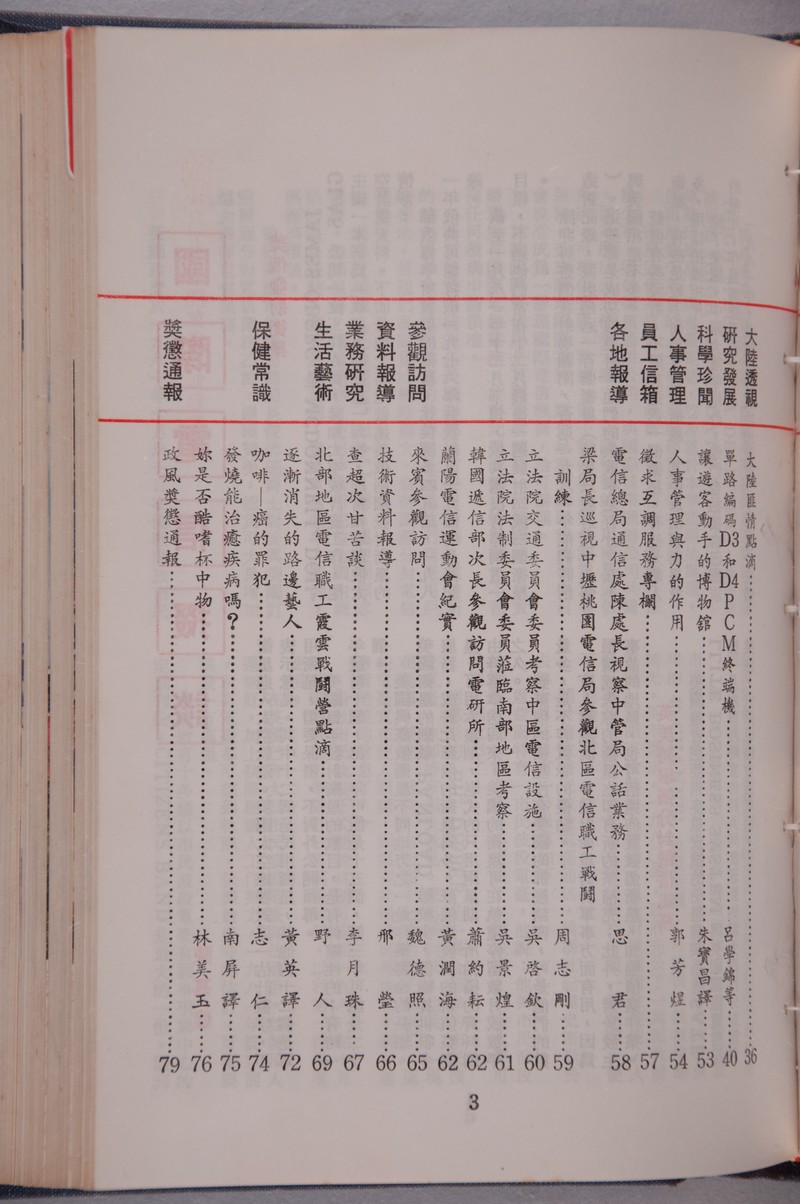 大陸透視 大陸匪情點滴……36
研究發展 單路編碼D3和D4PCM終端機……呂學錦等……40
科學珍聞 讓遊客動手的博物館……朱寶昌譯……53
人事管理 人事管理與力的作用……郭芳煜……54
員工信箱 徵求互調服務專欄……57
各地報導 電信總局通信處陳處長視察中管局公話業務……思君……58
梁局長巡視中壢桃園電信局參觀北區電信職工戰鬪
訓練……周志剛……59
立法院交通委員會委員考察中區電信設施……吳啓欽……60
立法院法制委員會委員蒞臨南部地區考察……吳景煌……61
韓國遞信部次長參觀訪問電研所……蕭約耘……62
蘭陽電信運動會紀實……黃潤海……62
參觀訪問 來賓參觀訪問……魏德照……65
資料報導 技術資料報導……邢瑩……66
業務研究 查超次甘苦談……李月珠……67
生活藝術 北部地區電信職工霞雲戰鬪營點滴……野人……69
逐漸消失的路邊藝人……黃英譯……72
保健常識 咖啡—癌的罪犯……志仁……74
發燒能治癒疾病嗎？……南屏譯……75
妳是否酷嗜杯中物……林美玉……76
獎懲通報 政風獎懲通報……79
3